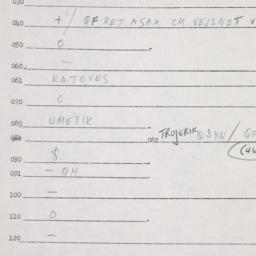 030
040 + / GF RET ASAX CM VEJSNIT V
050 0
-
060
061 KATOVES
070 0
080 UMETIK
081 082 TROJERIK QSYN /
090 $
091 - GH
100 -
110 0
120 -